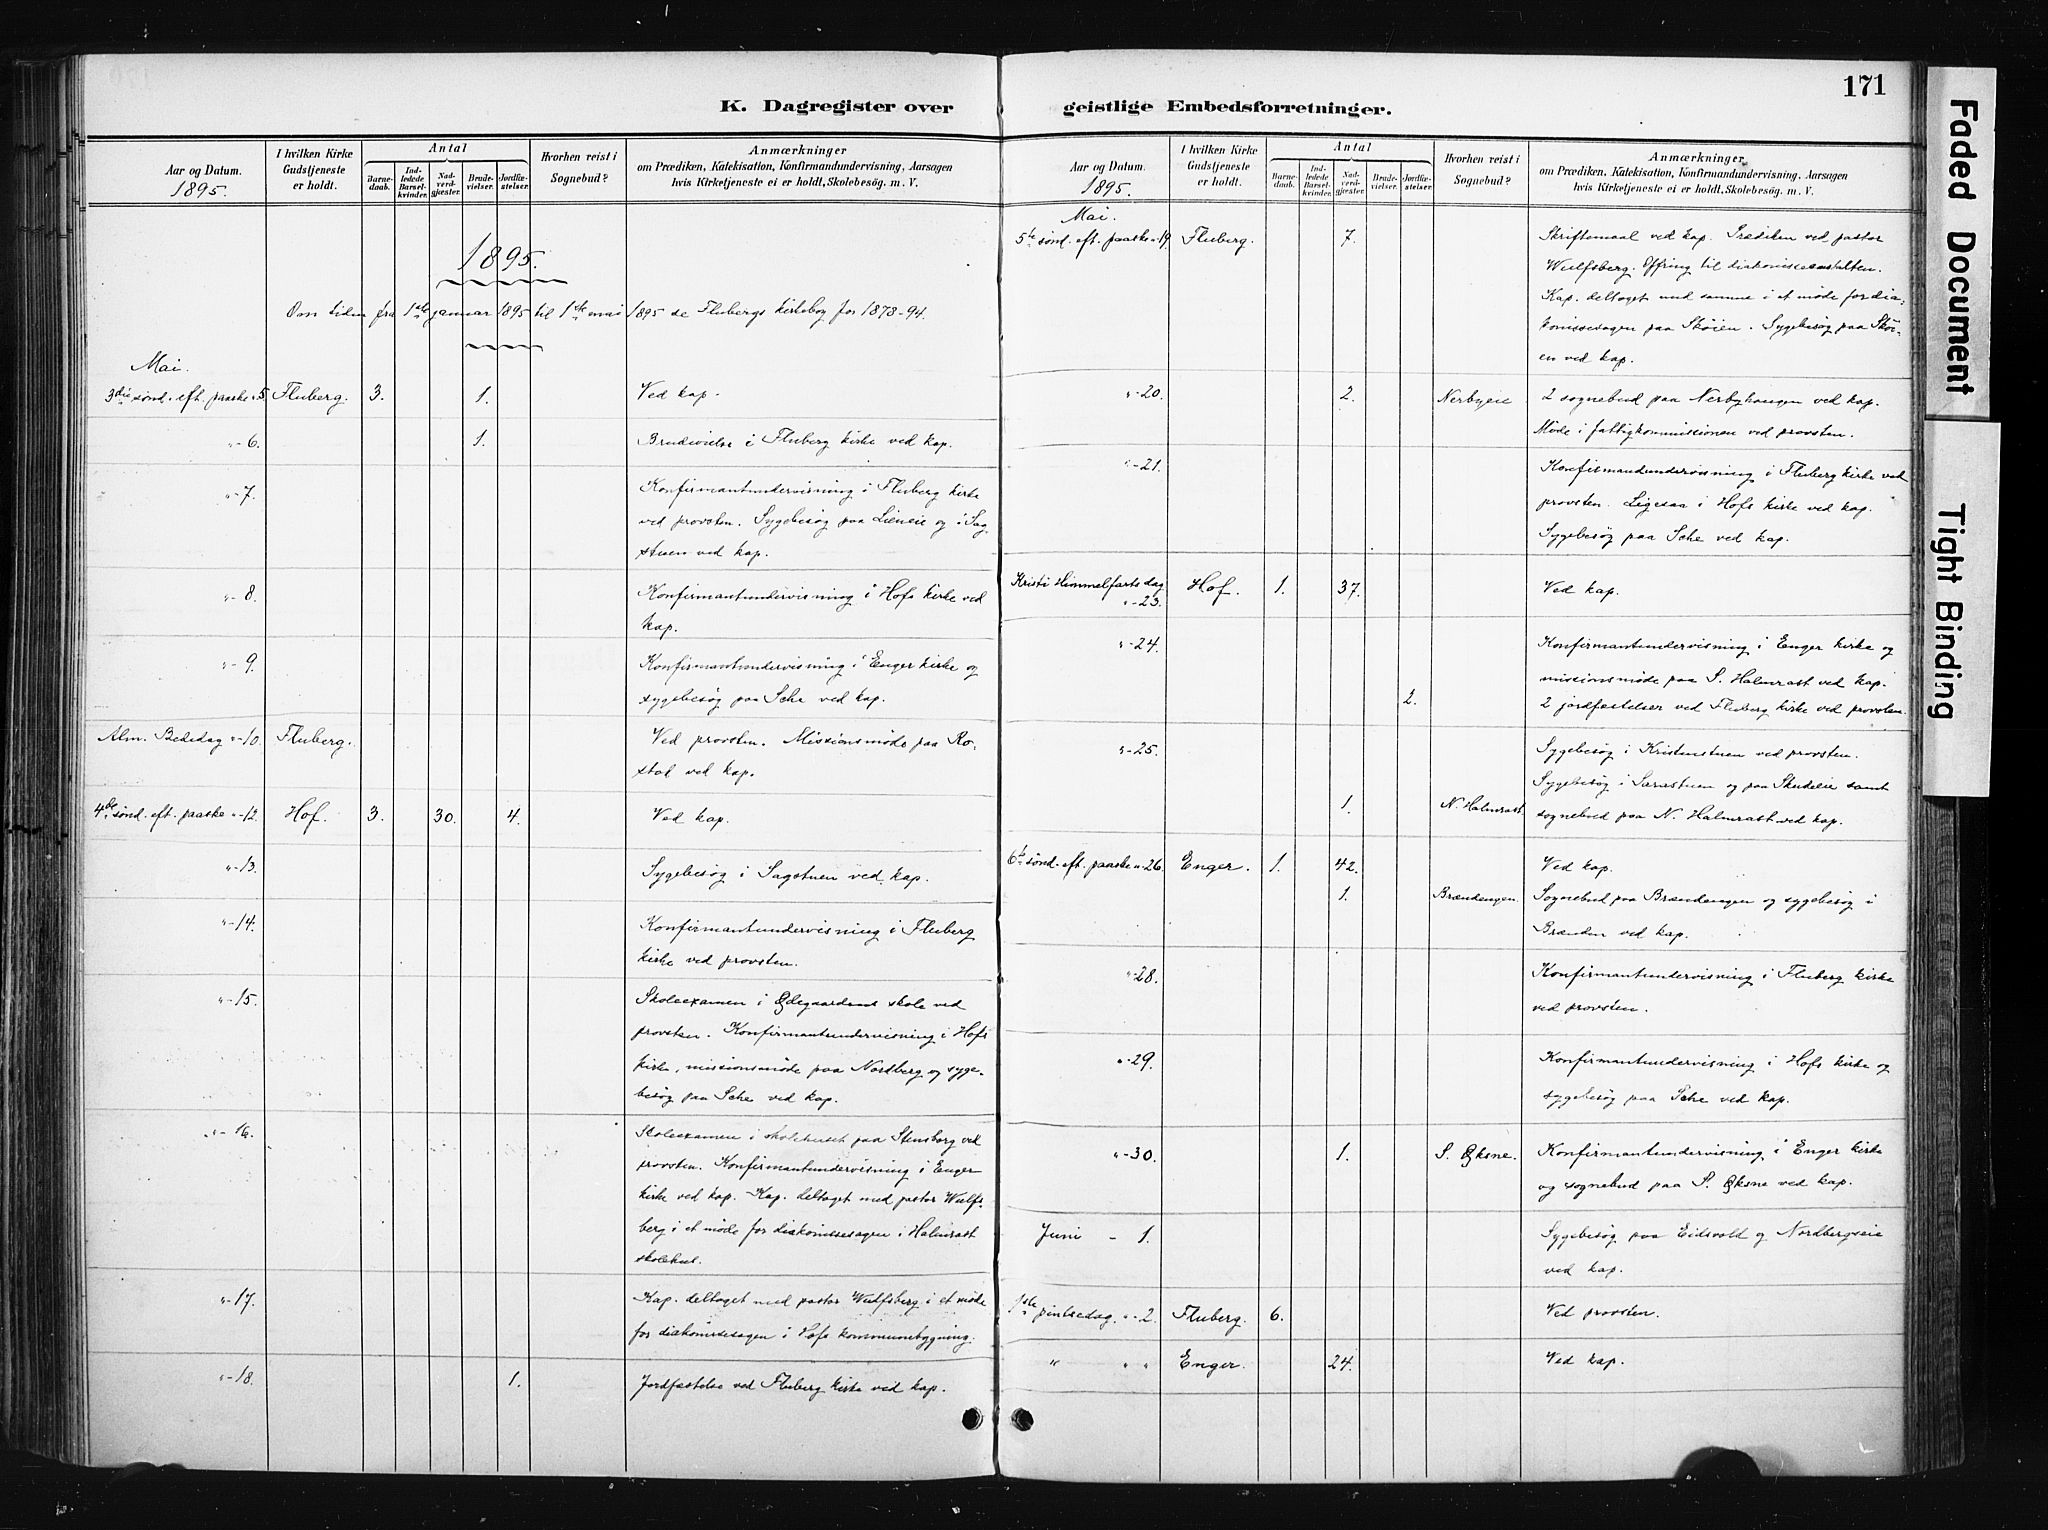 171
K. Dagregister over geistlige Embedsforretninger.
Aar og Datum.
1895.
I hvilken Kirke
Gudstjeneste
er holdt.
Antal
Barne-
daab.
Ind-
ledede
Barsel-
kvinder.
Nad-
verd-
gjester.
Brude-
vielser.
Jordfæ-
stelser.
Hvorhen reist i
Sognebud?
Anmærkninger
om Prædiken, Katekisation, Konfirmandundervisning, Aarsagen
hvis Kirketjeneste ei er holdt, Skolebesøg. m. V.
1895.
Om tiden fra 1ste januar 1895 til 1ste mai 1895 se Flubergs kirkebog for 1878-94.
Mai.
3die sønd. eft. paaske " 5. Fluberg. 3. 1. Ved kap.
"- 6. 1. Brudevielse i Fluberg kirke ved kap.
"- 7. Konfirmantundervisning i Fluberg kirke
ved provsten. Sygebesøg paa Lieneie og i Sag-
stuen ved kap.
"- 8. Konfirmantundervisning i Hofs kirke ved
kap.
"- 9. Konfirmantundervisning i Enger kirke og
sygebesøg paa Sche ved kap.
Alm. Bededag "-10. Fluberg. Ved provsten. Missionsmøde paa Ro-
stad ved kap.
4de sønd. eft. paaske "-12. Hof. 3. 30. 4. Ved kap.
"-13. Sygebesøg i Sagstuen ved kap.
"-14. Konfirmantundervisning i Fluberg
kirke ved provsten.
"-15. Skoleexamen i Ødegaardens skole ved
provsten. Konfirmantundervisning i Hofs
kirke, missionsmøde paa Nordberg og syge-
besøg paa Sche ved kap.
"- 16. Skoleexamen i skolehuset paa Stensborg ved
provsten. Konfirmantundervisning i Enger
kirke ved kap. Kap. deltaget med pastor Wulfs-
berg i et møde for diakonissesagen i Halmrast
skolehus.
"-17. Kap. deltaget med pastor Wulfsberg i et møde
for diakonissesagen i Hofs kommunebygning.
"-18. 1. Jordfæstelse ved Fluberg kirke ved kap.
Aar og Datum.
1895.
I hvilken Kirke
Gudstjeneste
er holdt.
Antal
Barne-
daab.
Ind-
ledede
Barsel-
kvinder.
Nad-
verd-
gjester.
Brude-
vielser.
Jordfæ-
stelser.
Hvorhen reist i
Sognebud?
Anmærkninger
om Prædiken, Katekisation, Konfirmandundervisning, Aarsagen
hvis Kirketjeneste ei er holdt, Skolebesøg. m. V.
Mai.
5te sønd. eft. paaske "-19. Fluberg. 7. Skriftemaal ved kap. Prædiken ved pastor
Wulfsberg. Offring til diakonisseanstalten.
Kap. deltaget med samme i et møde for dia-
konissesagen paa Skøien. Sygebesøg paa Skøi-
en ved kap.
"-20. 2. Nerbyeie 2 sognebud paa Nerbyhaugen ved kap.
Møde i fattigkommissionen ved provsten.
"-21. Konfirmandundervisning i Fluberg kirke ved
provsten. Ligesaa i Hofs kirke ved kap.
Sygebesøg paa Sche ved kap.
Kristi Himmelfartsdag
"-23. Hof. 1. 37. Ved kap.
"-24. Konfirmantundervisning i Enger kirke og
missionsmøde paa S. Halmrast ved kap.
2. 2 jordfæstelser ved Fluberg kirke ved provsten.
"-25. Sygebesøg i Kristenstuen ved provsten.
Sygebesøg i og paa Skudeie samt
1. N. Halmrast. sognebud paa N. Halmrast ved kap.
6te sønd. eft. paaske "-26. Enger. 1. 42. Ved kap.
1. Brændengen. Sognebud paa Brændengen og sygebesøg i
Brænden ved kap.
"-28. Konfirmantundervisning i Fluberg kirke
ved provsten.
"-29. Konfirmantundervisning i Hofs kirke og
sygebesøg paa Sche ved kap.
"-30. 1. S. Øksne. Konfirmantundervisning i Enger kirke
og sognebud paa S. Øksne ved kap.
Juni - 1. Sygebesøg paa Eidsvold og Nordbergseie
ved kap.
1ste pintsedag. "-2. Fluberg. 6. Ved provsten.
" " " Enger. 24. Ved kap.
Faded Document
Tight Binding